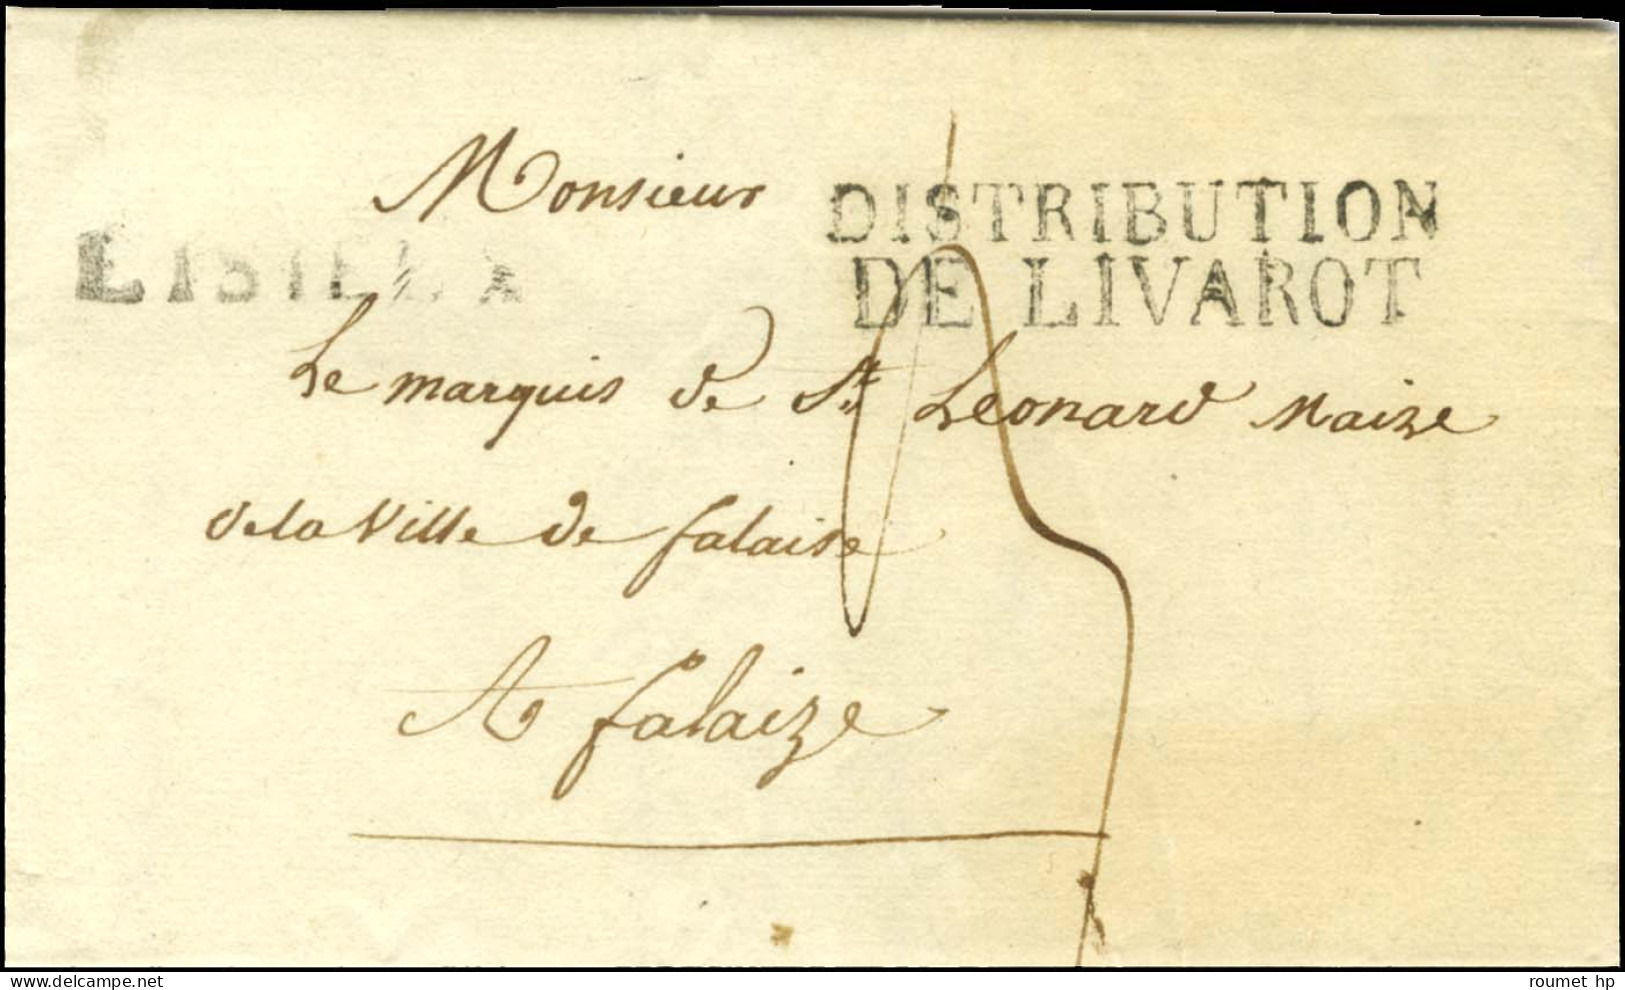 Monsieur
DISTRIBUTION
DE LIVAROT
LISIEUX
Le marquis de St Leonard Maize
de la Ville de falaise
A falaize
roumet hp